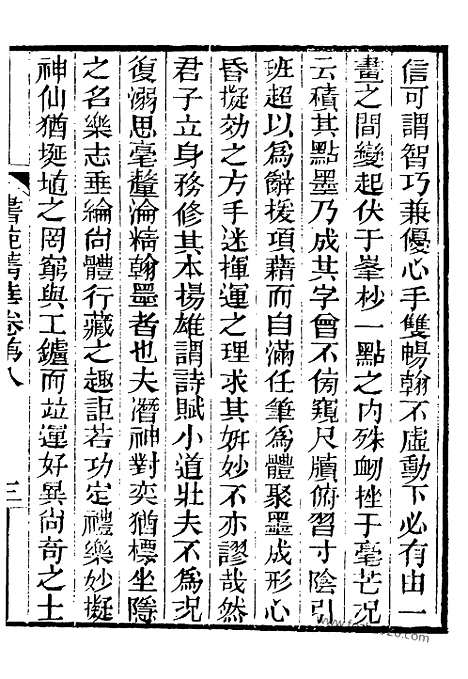 信可謂智巧兼優心手雙暢翰不虛動下必有由一
畫之間變起伏于峯杪一點之内殊衄挫于毫芒况
云積其點墨乃成其字曾不傍窺尺牘俯習寸陰引
班超以爲辭援項藉而自滿任筆爲體聚墨成形心
昏擬効之方手迷揮運之理求其姸妙不亦謬哉然
君子立身務修其本揚雄謂詩賦小道壯夫不爲况
復溺思毫釐淪精翰墨者也夫潛神對奕猶標坐隱
之名樂志垂綸尙體行藏之趣詎若功定禮樂妙擬
神仙猶埏埴之罔窮與工鑪而竝運好異尙奇之士
書苑菁華卷第八
三